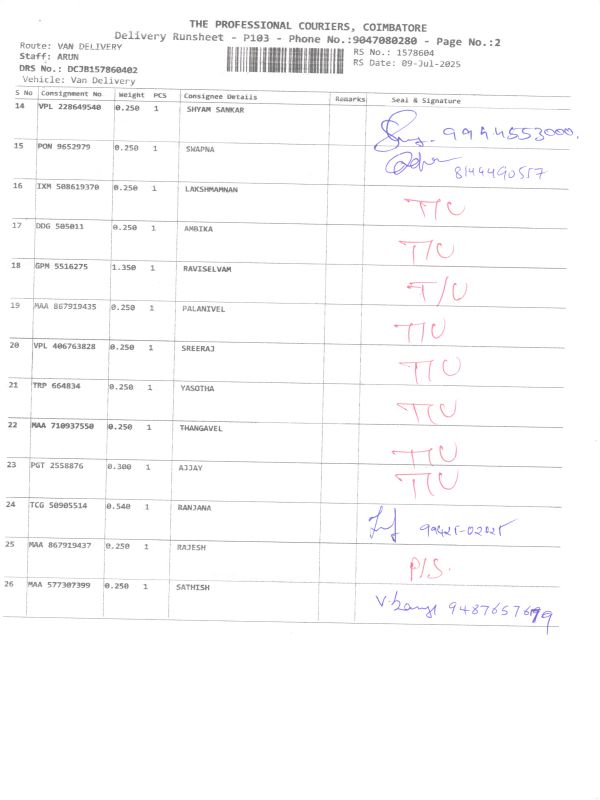 THE PROFESSIONAL COURIERS, COIMBATORE
Delivery Runsheet - P103 - Phone No.:9047080280 - Page No.:2
Route: VAN DELIVERY
RS No.: 1578604
Staff: ARUN
RS Date: 09-Jul-2025
DRS No.: DCJB157860402
Vehicle: Van Delivery
S No Consignment No Weight PCS Consignee Details Remarks Seal & Signature
14 VPL 228649540 0.250 1 SHYAM SANKAR 9944553000.
15 PON 9652979 0.250 1 SWAPNA 8144490557
16 IXM 508619370 0.250 1 LAKSHMAMNAN T/U
17 DDG 505011 0.250 1 AMBIKA T/U
18 GPM 5516275 1.350 1 RAVISELVAM T/U
19 MAA 867919435 0.250 1 PALANIVEL T/U
20 VPL 406763828 0.250 1 SREERAJ T/U
21 TRP 664834 0.250 1 YASOTHA T/U
22 MAA 710937550 0.250 1 THANGAVEL T/U
23 PGT 2558876 0.300 1 AJJAY T/U
24 TCG 50905514 0.540 1 RANJANA 99425-02025
25 MAA 867919437 0.250 1 RAJESH P/S.
26 MAA 577307399 0.250 1 SATHISH